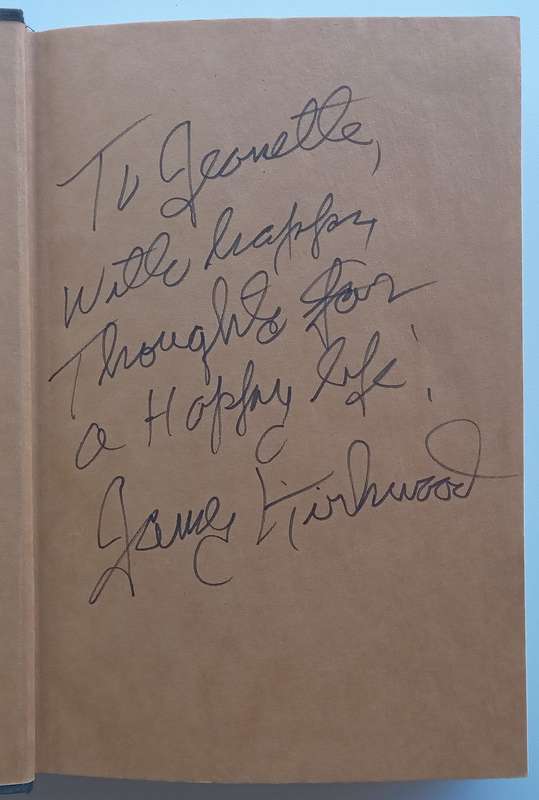 To Jeanette,
With happy
Thoughts for
a Happy life!
James Kirkwood